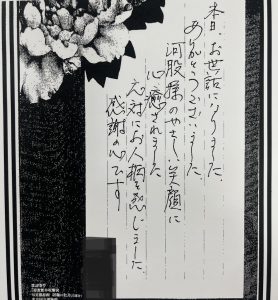 本日、お世話になりました。
ありがとうございました。
河股様のやさしい笑顔に
心癒されました
応対にお人柄を感じました。
感謝の心です